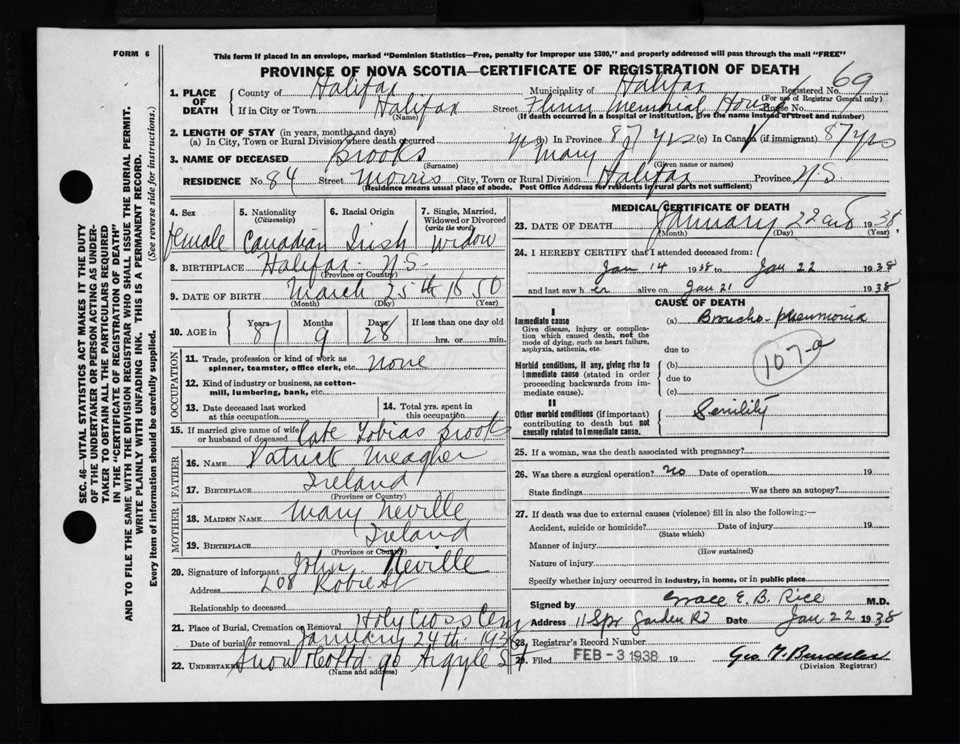 FORM 6
This form if placed in an envelope, marked "Dominion Statistics—Free, penalty for Improper use $300," and properly addressed will pass through the mail "FREE"
PROVINCE OF NOVA SCOTIA—CERTIFICATE OF REGISTRATION OF DEATH
SEC. 46– VITAL STATISTICS ACT MAKES IT THE DUTY
OF THE UNDERTAKER OR PERSON ACTING AS UNDER-
TAKER TO OBTAIN ALL THE PARTICULARS REQUIRED
IN THE "CERTIFICATE OF REGISTRATION OF DEATH"
AND TO FILE THE SAME WITH THE DIVISION REGISTRAR WHO SHALL ISSUE THE BURIAL PERMIT.
WRITE PLAINLY WITH UNFADING INK. THIS IS A PERMANENT RECORD.
Every item of information should be carefully supplied. (See reverse side for instructions.)
1. PLACE OF DEATH
County of Halifax Municipality of Halifax Registered No. 69
(For use of Registrar General only)
If in City or Town Halifax Street Flinn Memorial House No.
(Name) (If death occurred in a hospital or institution, give the name instead of street and number)
2. LENGTH OF STAY (in years, months and days)
(a) In City, Town or Rural Division where death occurred yrs In Province 87 yrs (c) In Canada (if immigrant) 87 yrs
3. NAME OF DECEASED Brooks Mary J
(Surname) (Given name or names)
RESIDENCE No. 84 Street Morris City, Town or Rural Division Halifax Province N.S.
(Residence means usual place of abode. Post Office Address for residents in rural parts not sufficient)
4. Sex
Female
5. Nationality
(Citizenship)
Canadian
6. Racial Origin
Irish
7. Single, Married, Widowed or Divorced
(write the word)
Widow
8. BIRTHPLACE Halifax N.S.
(Province or Country)
9. DATE OF BIRTH March 25th 1850
(Month) (Day) (Year)
10. AGE in Years 87 Months 9 Days 28 If less than one day old
hrs. or min.
OCCUPATION
11. Trade, profession or kind of work as
spinner, teamster, office clerk, etc. none
12. Kind of industry or business, as cotton-
mill, lumbering, bank, etc.
13. Date deceased last worked
at this occupation
14. Total yrs. spent in
this occupation
15. If married give name of wife
or husband of deceased Late Tobias Brooks
FATHER
16. NAME Patrick Meagher
17. BIRTHPLACE Ireland
(Province or Country)
MOTHER
18. MAIDEN NAME Mary Neville
19. BIRTHPLACE Ireland
(Province or Country)
20. Signature of informant John Neville
Address 208 Robie St
Relationship to deceased
21. Place of Burial, Cremation or Removal Holy Cross Cem
Date of burial or removal January 24th 1938
22. UNDERTAKER Snow & Co Ltd 90 Argyle St
(Name and address)
MEDICAL CERTIFICATE OF DEATH
23. DATE OF DEATH January 22nd 1938
(Month) (Day) (Year)
24. I HEREBY CERTIFY that I attended deceased from:
Jan 14 1938 to Jan 22 1938
and last saw her alive on Jan 21 1938
CAUSE OF DEATH
I
Immediate cause
Give disease, injury or complica-
tion which caused death, not the
mode of dying, such as heart failure,
asphyxia, asthenia, etc.
(a) Broncho-pneumonia
due to
107-a
Morbid conditions, if any, giving rise to
immediate cause (stated in order
proceeding backwards from im-
mediate cause).
(b)
due to
(c)
II
Other morbid conditions (if important)
contributing to death but not
causally related to immediate cause.
Senility
25. If a woman, was the death associated with pregnancy?
26. Was there a surgical operation? no Date of operation 19
State findings Was there an autopsy?
27. If death was due to external causes (violence) fill in also the following:—
Accident, suicide or homicide? Date of injury 19
(State which)
Manner of injury
(How sustained)
Nature of injury
Specify whether injury occurred in industry, in home, or in public place
Signed by Grace E. B. Rice M.D.
Address 11 Spr Garden Rd Date Jan 22 1938
28. Registrar's Record Number
29. Filed FEB - 3 1938 19 Geo
(Division Registrar)